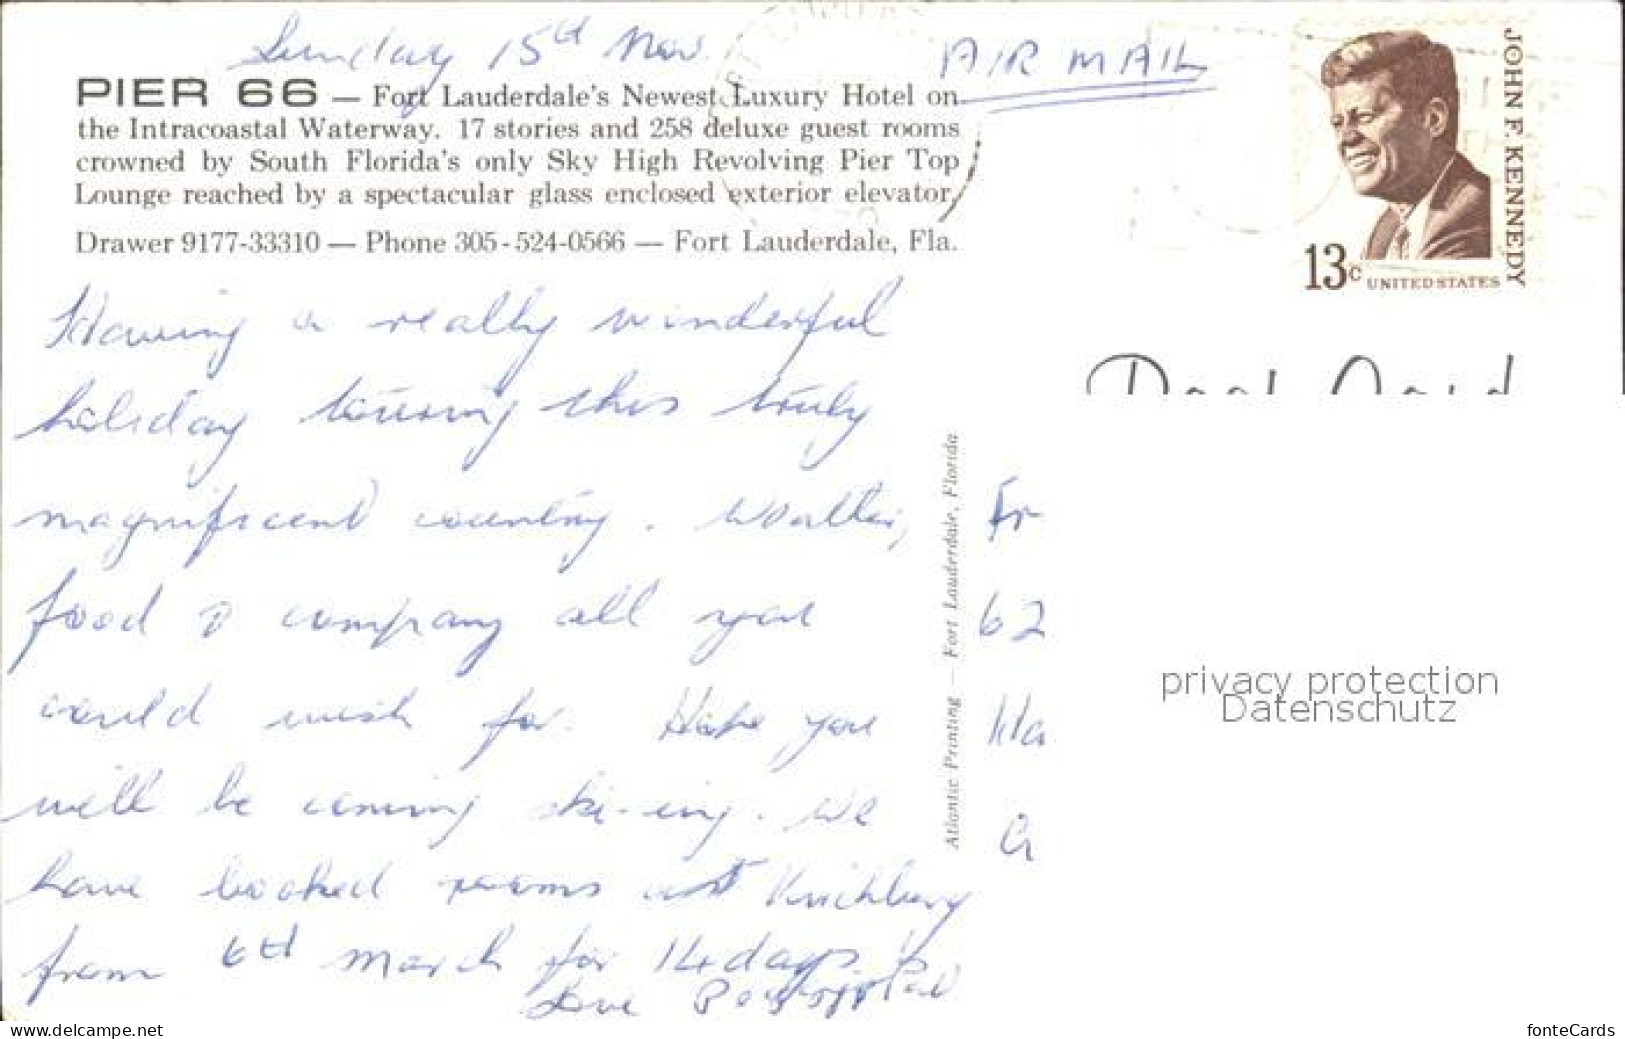 Sunday 15th Nov.
AIR MAIL
PIER 66 — Fort Lauderdale's Newest Luxury Hotel on
the Intracoastal Waterway. 17 stories and 258 deluxe guest rooms
crowned by South Florida's only Sky High Revolving Pier Top
Lounge reached by a spectacular glass enclosed exterior elevator,
Drawer 9177-33310 — Phone 305-524-0566 — Fort Lauderdale, Fla.
JOHN F. KENNEDY
13c UNITED STATES
Having a really wonderful
holiday touring this truly
magnificent country. Weather,
food & company all you
could wish for. Hope you
will be coming ski-ing. We
have booked rooms at Kirchberg
from 6th March for 14 days
Love
Atlantic Printing — Fort Lauderdale, Florida
Post Card
Fr
62
Ha
privacy protection
Datenschutz
www.delcampe.net
fonteCards